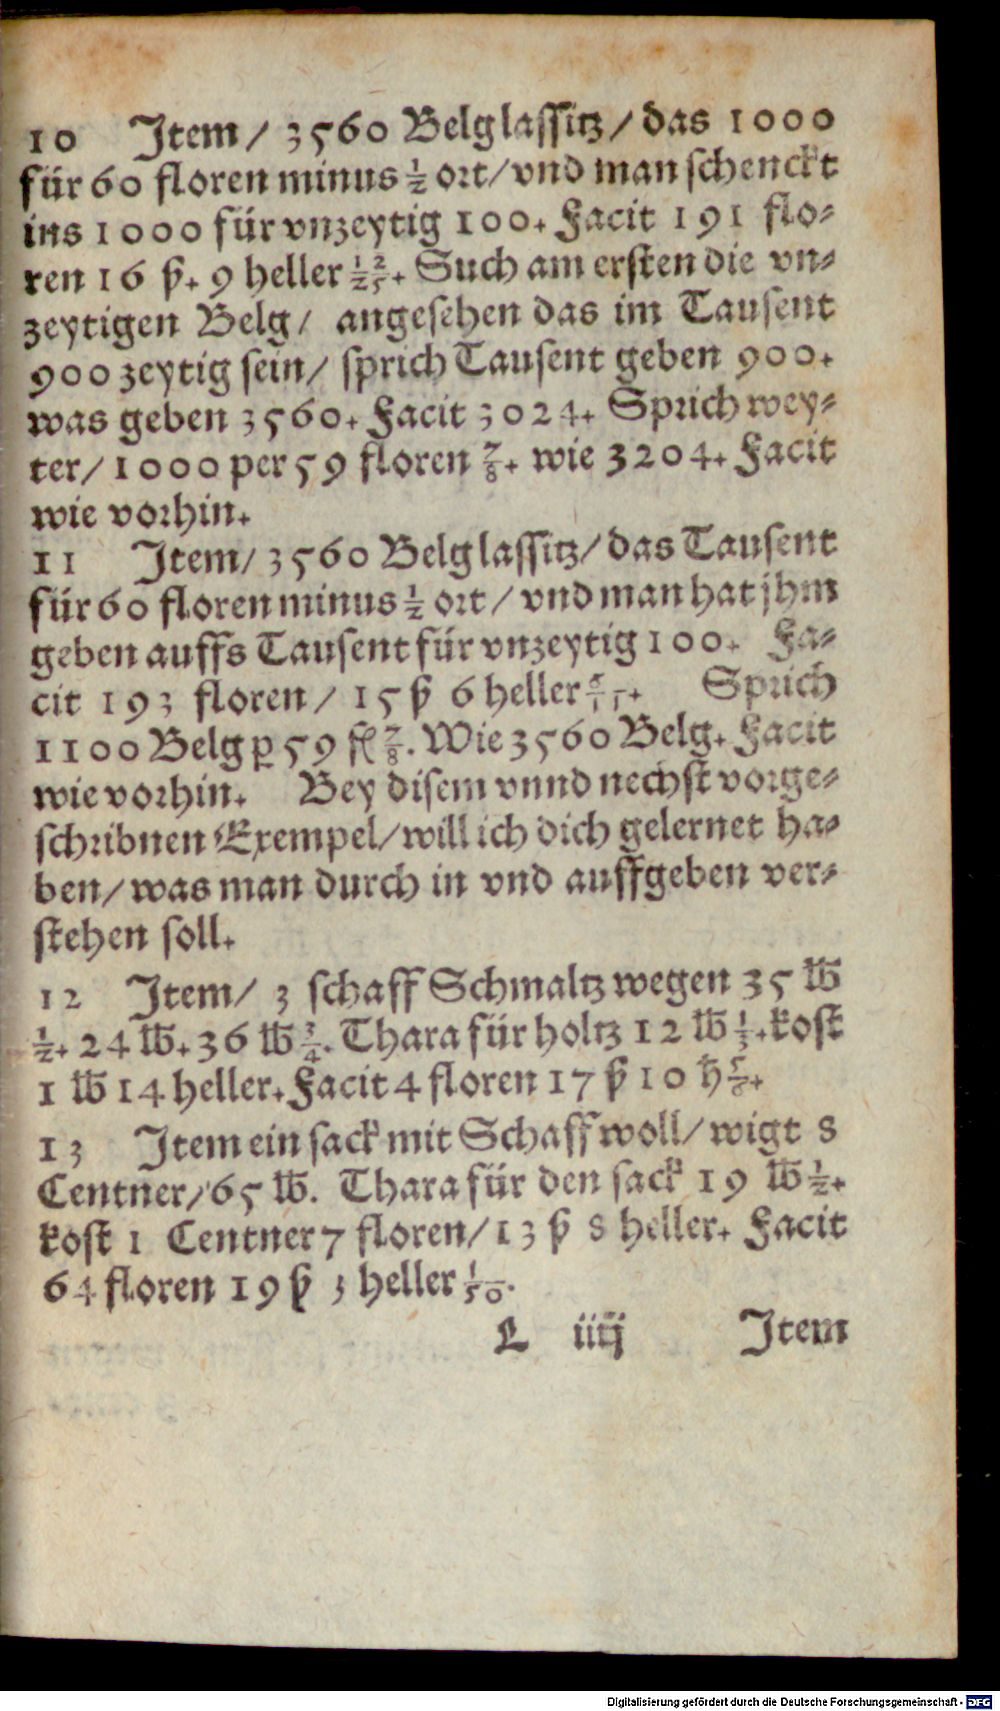 10 Item / 3560 Belglassitz / das 1000
für 60 floren minus ½ ort / vnd man schenckt
ins 1000 für vnzeytig 100. Facit 191 flo⸗
ren 16 ß. 9 heller 12/25. Such am ersten die vn⸗
zeytigen Belg / angesehen das im Tausent
900 zeytig sein / sprich Tausent geben 900.
was geben 3560. Facit 3024. Sprich wey⸗
ter / 1000 per 59 floren ⅞. wie 3204. Facit
wie vorhin.
11 Item / 3560 Belglassitz / das Tausent
für 60 floren minus ½ ort / vnd man hat jhm
geben auffs Tausent für vnzeytig 100. Fa⸗
cit 193 floren / 15 ß 6 heller 6/11. Sprich
1100 Belg ꝑ 59 fl ⅞. Wie 3560 Belg. Facit
wie vorhin. Bey disem vnnd nechst vorge⸗
schribnen Exempel / will ich dich gelernet ha⸗
ben / was man durch in vnd auffgeben ver⸗
stehen soll.
12 Item / 3 schaff Schmaltz wegen 35 ℔
½. 24 ℔. 36 ℔ ¾. Thara für holtz 12 ℔ ⅓. kost
1 ℔ 14 heller. Facit 4 floren 17 ß 10 ħ ⅚.
13 Item ein sack mit Schaffwoll / wigt 8
Centner / 65 ℔. Thara für den sack 19 ℔ ½.
kost 1 Centner 7 floren / 13 ß 8 heller. Facit
64 floren 19 ß 3 heller 1/50.
L iiij Item
Digitalisierung gefördert durch die Deutsche Forschungsgemeinschaft - DFG